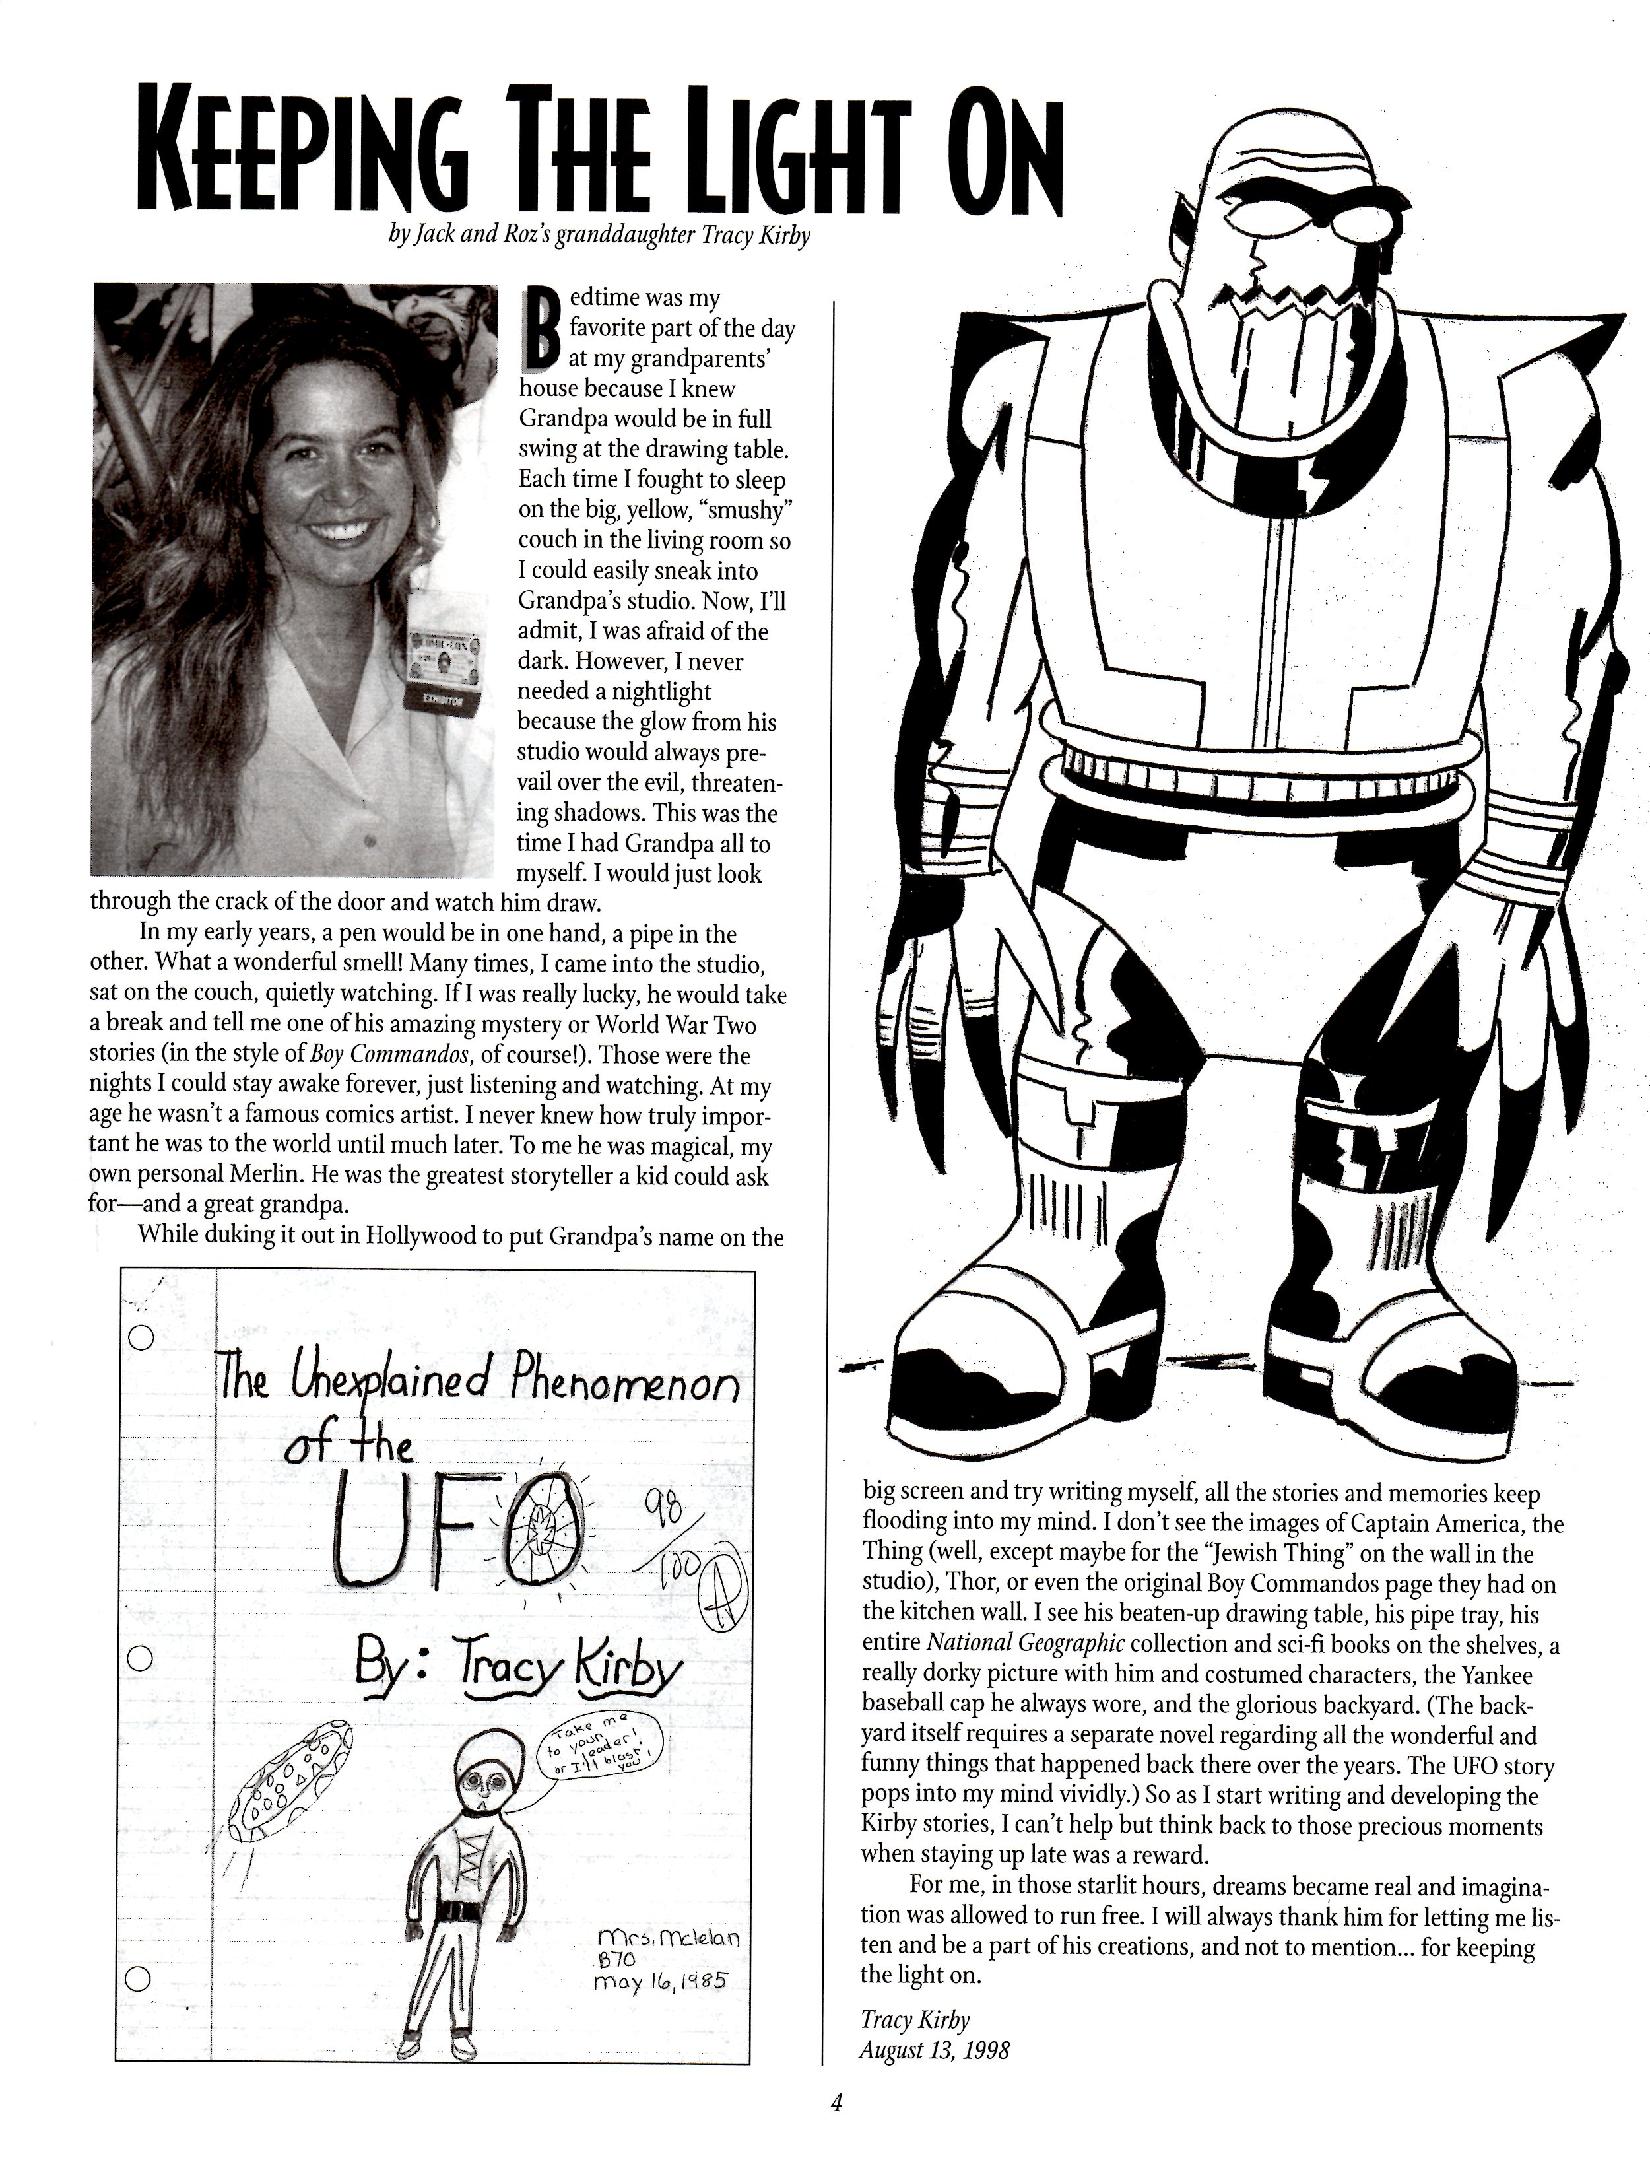 KEEPING THE LIGHT ON
by Jack and Roz's granddaughter Tracy Kirby
Bedtime was my
favorite part of the day
at my grandparents'
house because I knew
Grandpa would be in full
swing at the drawing table.
Each time I fought to sleep
on the big, yellow, “smushy”
couch in the living room so
I could easily sneak into
Grandpa's studio. Now, I'll
admit, I was afraid of the
dark. However, I never
needed a nightlight
because the glow from his
studio would always pre-
vail over the evil, threaten-
ing shadows. This was the
time I had Grandpa all to
myself. I would just look
through the crack of the door and watch him draw.
In my early years, a pen would be in one hand, a pipe in the
other. What a wonderful smell! Many times, I came into the studio,
sat on the couch, quietly watching. If I was really lucky, he would take
a break and tell me one of his amazing mystery or World War Two
stories (in the style of Boy Commandos, of course!). Those were the
nights I could stay awake forever, just listening and watching. At my
age he wasn't a famous comics artist. I never knew how truly impor-
tant he was to the world until much later. To me he was magical, my
own personal Merlin. He was the greatest storyteller a kid could ask
for—and a great grandpa.
While duking it out in Hollywood to put Grandpa's name on the
EXHIBITOR
The Unexplained Phenomenon
of the
UFO
98/100
A
By: Tracy Kirby
Take me
to your
leader!
or I'll blast
you!
Mrs. Mclelan
B70
may 16, 1985
big screen and try writing myself, all the stories and memories keep
flooding into my mind. I don't see the images of Captain America, the
Thing (well, except maybe for the “Jewish Thing” on the wall in the
studio), Thor, or even the original Boy Commandos page they had on
the kitchen wall. I see his beaten-up drawing table, his pipe tray, his
entire National Geographic collection and sci-fi books on the shelves, a
really dorky picture with him and costumed characters, the Yankee
baseball cap he always wore, and the glorious backyard. (The back-
yard itself requires a separate novel regarding all the wonderful and
funny things that happened back there over the years. The UFO story
pops into my mind vividly.) So as I start writing and developing the
Kirby stories, I can't help but think back to those precious moments
when staying up late was a reward.
For me, in those starlit hours, dreams became real and imagina-
tion was allowed to run free. I will always thank him for letting me lis-
ten and be a part of his creations, and not to mention... for keeping
the light on.
Tracy Kirby
August 13, 1998
4